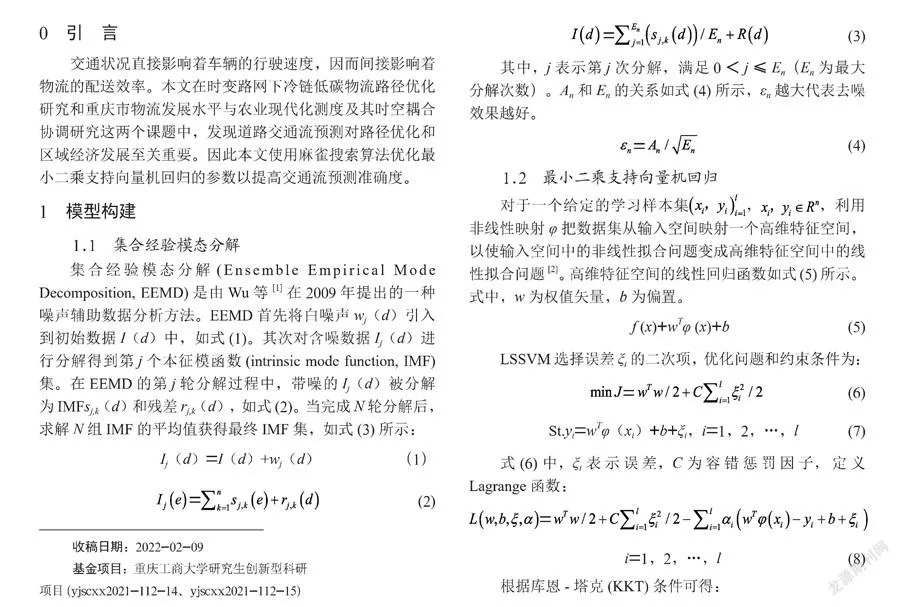 0 引 言
交通状况直接影响着车辆的行驶速度，因而间接影响着
物流的配送效率。本文在时变路网下冷链低碳物流路径优化
研究和重庆市物流发展水平与农业现代化测度及其时空耦合
协调研究这两个课题中，发现道路交通流预测对路径优化和
区域经济发展至关重要。因此本文使用麻雀搜索算法优化最
小二乘支持向量机回归的参数以提高交通流预测准确度。
1 模型构建
1.1 集合经验模态分解
集合经验模态分解 (Ensemble Empirical Mode
Decomposition, EEMD) 是由 Wu 等 [1] 在 2009 年提出的一种
噪声辅助数据分析方法。EEMD 首先将白噪声 wj（d）引入
到初始数据 I（d）中，如式 (1)。其次对含噪数据 Ij（d）进
行分解得到第 j 个本征模函数 (intrinsic mode function, IMF)
集。在 EEMD 的第 j 轮分解过程中，带噪的 Ij（d）被分解
为 IMFsj,k（d）和残差 rj,k（d），如式 (2)。当完成 N 轮分解后，
求解 N 组 IMF 的平均值获得最终 IMF 集，如式 (3) 所示：
Ij（d）=I（d）+wj（d） （1）
Ij(e)=∑k=1^n sj,k(e)+rj,k(d) (2)
收稿日期：2022-02-09
基金项目：重庆工商大学研究生创新型科研
项目 (yjscxx2021-112-14、yjscxx2021-112-15)
I(d)=∑j=1^En (sj,k(d))/En+R(d) (3)
其中，j 表示第 j 次分解，满足 0＜j≤En（En 为最大
分解次数）。An 和 En 的关系如式 (4) 所示，εn 越大代表去噪
效果越好。
εn=An/√En (4)
1.2 最小二乘支持向量机回归
对于一个给定的学习样本集(xi，yi)i=1^l，xi，yi∈R^n，利用
非线性映射 φ 把数据集从输入空间映射一个高维特征空间，
以使输入空间中的非线性拟合问题变成高维特征空间中的线
性拟合问题 [2]。高维特征空间的线性回归函数如式 (5) 所示。
式中，w 为权值矢量，b 为偏置。
f(x)+w^Tφ(x)+b (5)
LSSVM 选择误差 ξi 的二次项，优化问题和约束条件为：
min J=w^Tw/2+C∑i=1^l ξi^2/2 (6)
St.yi=w^Tφ（xi）+b+ξi，i=1，2，…，l (7)
式 (6) 中，ξi 表示误差，C 为容错惩罚因子，定义
Lagrange 函数：
L(w,b,ξ,α)=w^Tw/2+C∑i=1^l ξi^2/2-∑i=1^l αi(w^Tφ(xi)-yi+b+ξi)
i=1，2，…，l (8)
根据库恩 - 塔克 (KKT) 条件可得：
龙源期刊网